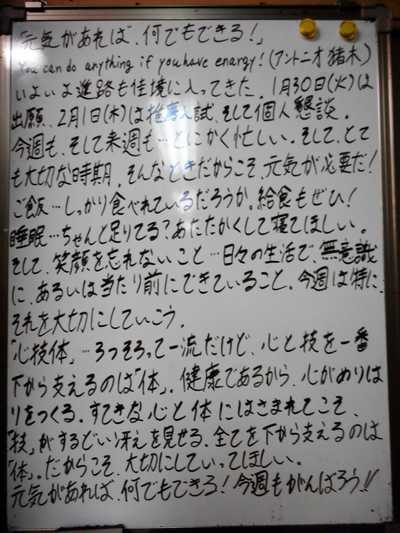 「元気があれば、何でもできる！」
You can do anything if you have energy!（アントニオ猪木）
いよいよ進路も佳境に入ってきた。1月30日(火)は
出願、2月1日(木)は推薦入試、そして個人懇談。
今週も、そして来週も…とにかく忙しい。そして、とて
も大切な時期。そんなときだからこそ、元気が必要だ！
ご飯…しっかり食べれているだろうか。給食もぜひ！
睡眠…ちゃんと足りてる？あたたかくして寝てほしい。
そして、笑顔を忘れないこと…日々の生活で、無意識
に、あるいは当たり前にできていること。今週は特に、
それを大切にしていこう。
「心技体」…3つそろって一流だけど、心と技を一番
下から支えるのは「体」。健康であるから、心がめりは
りをつくる。すてきな心と体にはさまれてこそ、
「技」がするどい冴えを見せる。全てを下から支えるのは
「体」。だからこそ、大切にしていってほしい。
元気があれば、何でもできる！今週もがんばろう!!